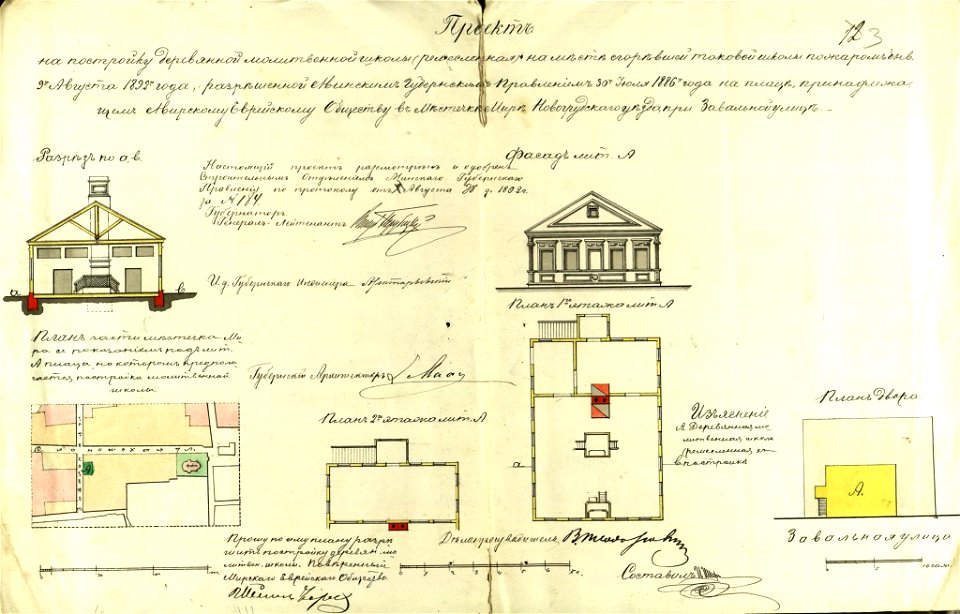 Проектъ
на постройку деревянной молитвенной школы (ремесленная) на мѣстѣ сгорѣвшей таковой школы пожаромъ быв.
9го Августа 1892 года, разрѣшенной Минскимъ Губернскимъ Правленіемъ 30го Іюля 1886го года на плацѣ, принадлежа-
щемъ Мирскому Еврейскому Обществу въ Мѣстечкѣ Мирѣ Новогрудскаго уѣзда, при Завальной улицѣ.
Разрѣзъ по а, в.
Настоящій проектъ разсмотренъ и одобренъ
Строительнымъ Отдѣленіемъ Минскаго Губернскаго
Правленія по протоколу отъ Августа
за № 184
Губернаторъ
Генералъ-Лейтенантъ
И. д. Губернскаго Инженера
Губернскій Архитекторъ
Фасадъ лит. А
а
в
Планъ 1го этажа лит. А
Планъ части мѣстечка Ми-
ра съ показаніемъ подъ лит.
А плаца, на которомъ предпола-
гается постройка молитвенной
школы.
улица
Планъ 2го этажа лит. А
а
Изъясненіе
А Деревянная мо-
литвенная школа
ремесленная къ
постройкѣ
Планъ Двора
А.
Завальная улица
Прошу по сему плану разрѣ-
шить постройку деревян. мо-
литвен. школы. Повѣренный
Мирскаго Еврейскаго Общества
Дѣлопроизводитель
Составилъ